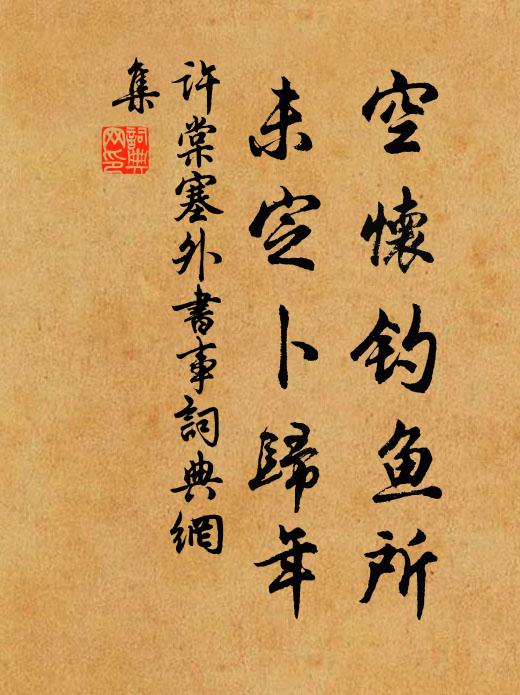 空懷釣魚所
未定卜歸年
許棠塞外書事詞典網
集
詞典
网印